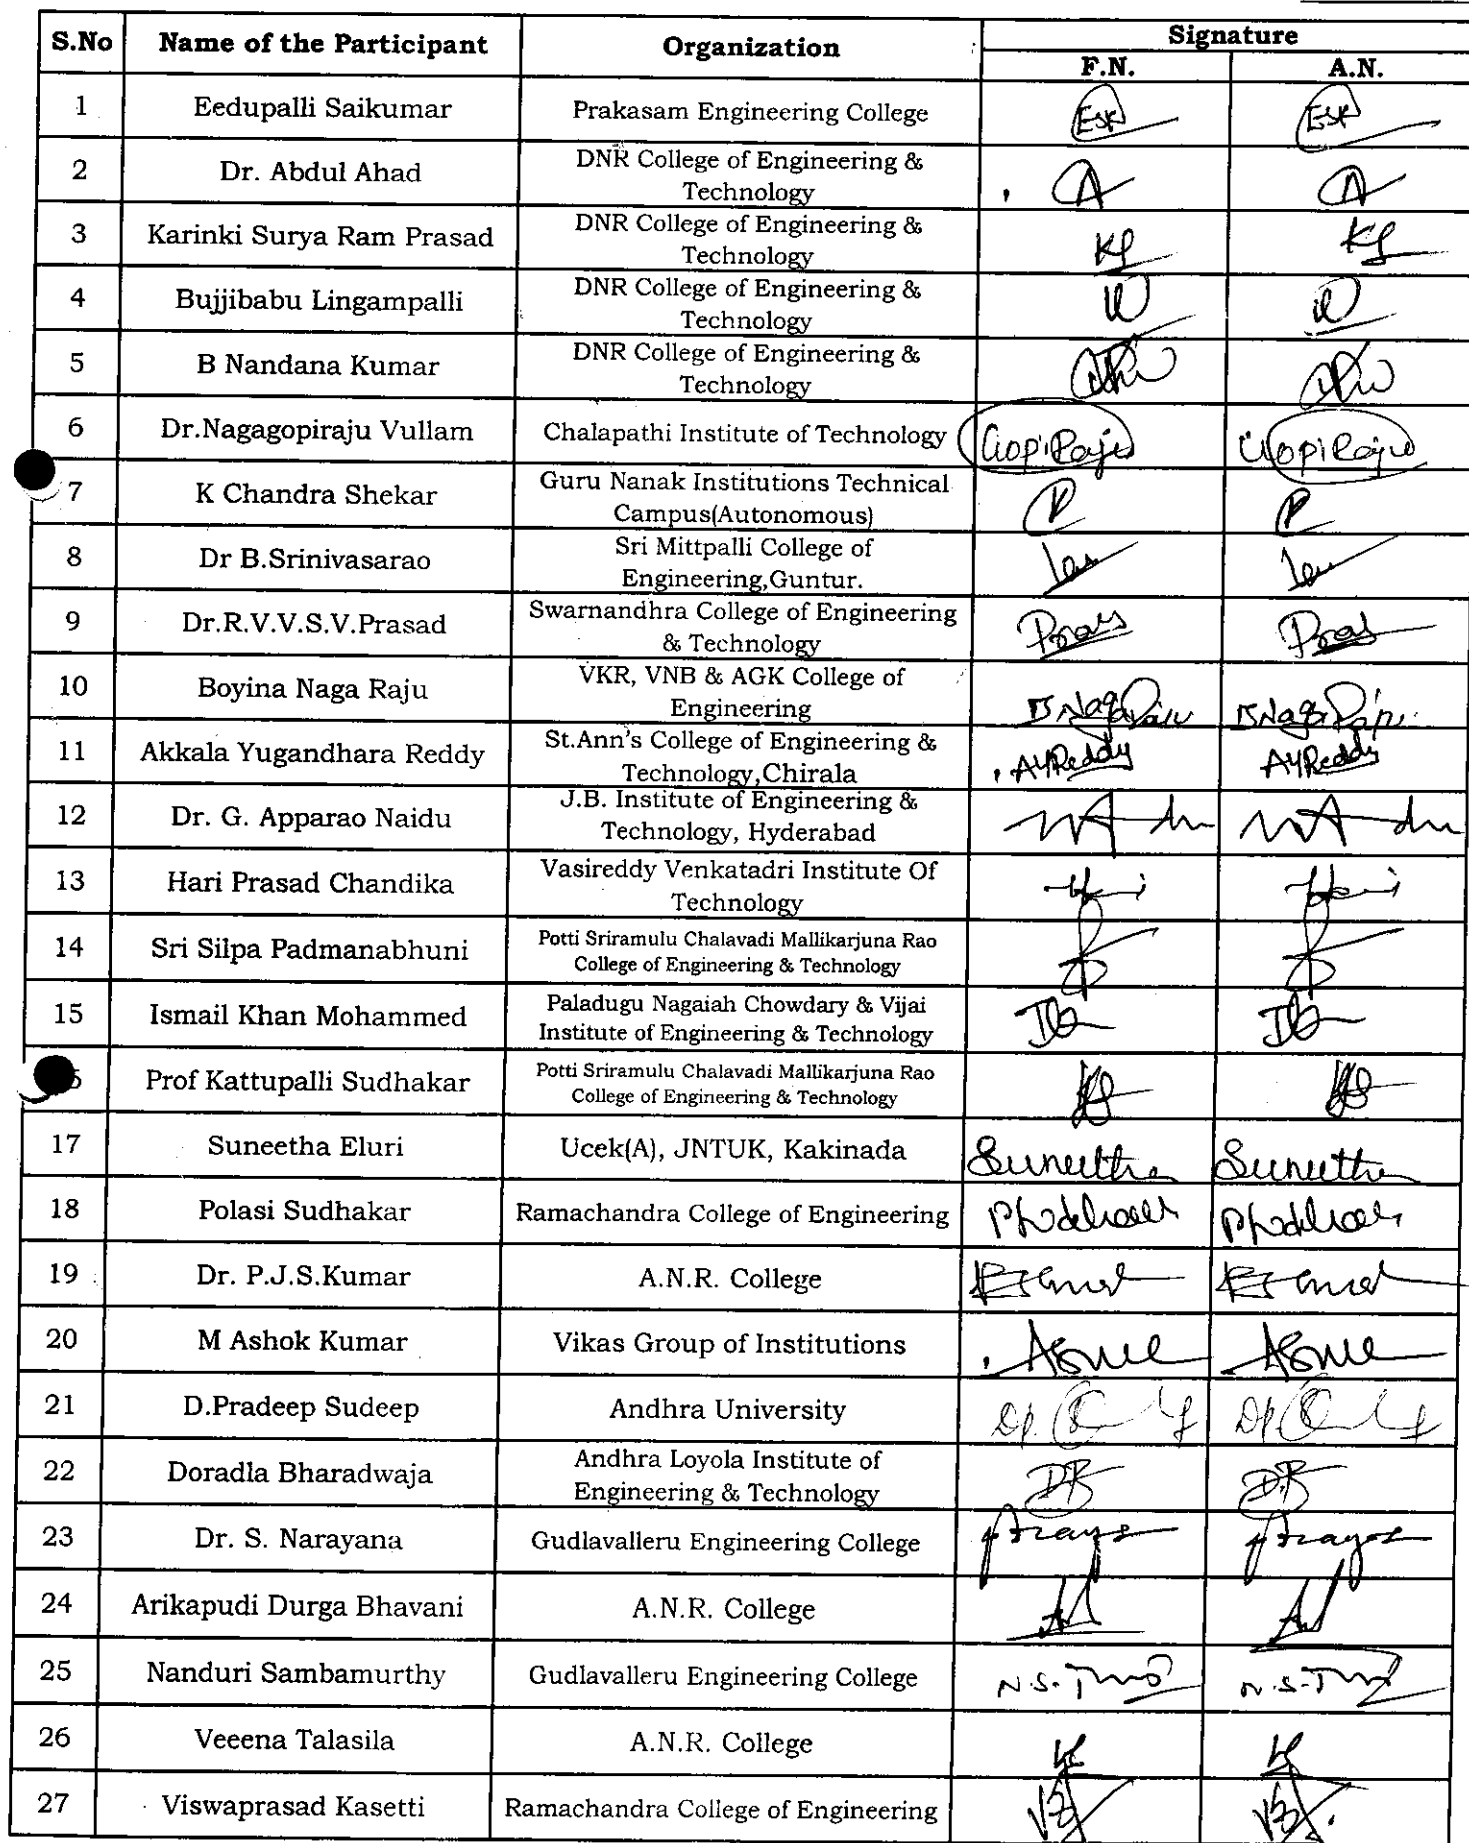 S.No Name of the Participant Organization Signature
F.N. A.N.
1 Eedupalli Saikumar Prakasam Engineering College ESK ESK
2 Dr. Abdul Ahad DNR College of Engineering &
Technology
3 Karinki Surya Ram Prasad DNR College of Engineering &
Technology
4 Bujjibabu Lingampalli DNR College of Engineering &
Technology
5 B Nandana Kumar DNR College of Engineering &
Technology
6 Dr.Nagagopiraju Vullam Chalapathi Institute of Technology GopiRaju GopiRaju
7 K Chandra Shekar Guru Nanak Institutions Technical
Campus(Autonomous)
8 Dr B.Srinivasarao Sri Mittpalli College of
Engineering,Guntur.
9 Dr.R.V.V.S.V.Prasad Swarnandhra College of Engineering
& Technology
10 Boyina Naga Raju VKR, VNB & AGK College of
Engineering B Naga Raju B Naga Raju
11 Akkala Yugandhara Reddy St.Ann's College of Engineering &
Technology,Chirala AYReddy AYReddy
12 Dr. G. Apparao Naidu J.B. Institute of Engineering &
Technology, Hyderabad
13 Hari Prasad Chandika Vasireddy Venkatadri Institute Of
Technology
14 Sri Silpa Padmanabhuni Potti Sriramulu Chalavadi Mallikarjuna Rao
College of Engineering & Technology
15 Ismail Khan Mohammed Paladugu Nagaiah Chowdary & Vijai
Institute of Engineering & Technology
Prof Kattupalli Sudhakar Potti Sriramulu Chalavadi Mallikarjuna Rao
College of Engineering & Technology
17 Suneetha Eluri Ucek(A), JNTUK, Kakinada Suneetha Suneetha
18 Polasi Sudhakar Ramachandra College of Engineering
19 Dr. P.J.S.Kumar A.N.R. College
20 M Ashok Kumar Vikas Group of Institutions
21 D.Pradeep Sudeep Andhra University
22 Doradla Bharadwaja Andhra Loyola Institute of
Engineering & Technology DB DB
23 Dr. S. Narayana Gudlavalleru Engineering College
24 Arikapudi Durga Bhavani A.N.R. College
25 Nanduri Sambamurthy Gudlavalleru Engineering College
26 Veeena Talasila A.N.R. College
27 Viswaprasad Kasetti Ramachandra College of Engineering